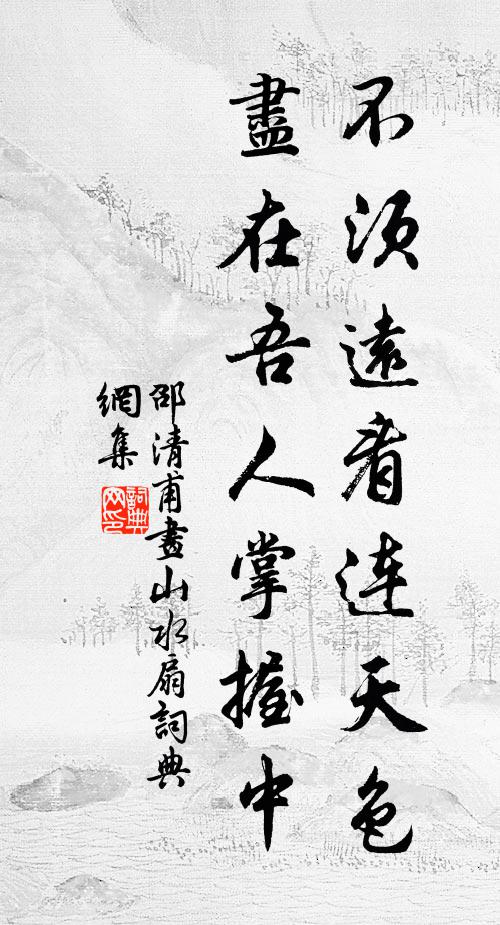 不須遠看連天色
盡在吾人掌握中
邵清甫畫山水扇詞典
網集
詞典
网印